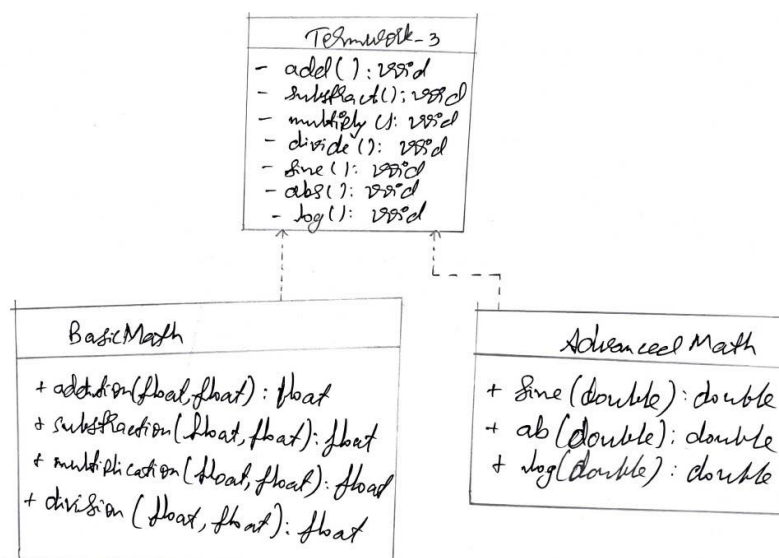 Termwork-3
- add(): void
- substract(): void
- multiply(): void
- divide(): void
- sine(): void
- abs(): void
- log(): void
BasicMath
+ addition(float,float): float
+ substraction(float,float): float
+ multiplication(float,float): float
+ division (float,float): float
Advanced Math
+ sine(double): double
+ ab(double): double
+ log(double): double